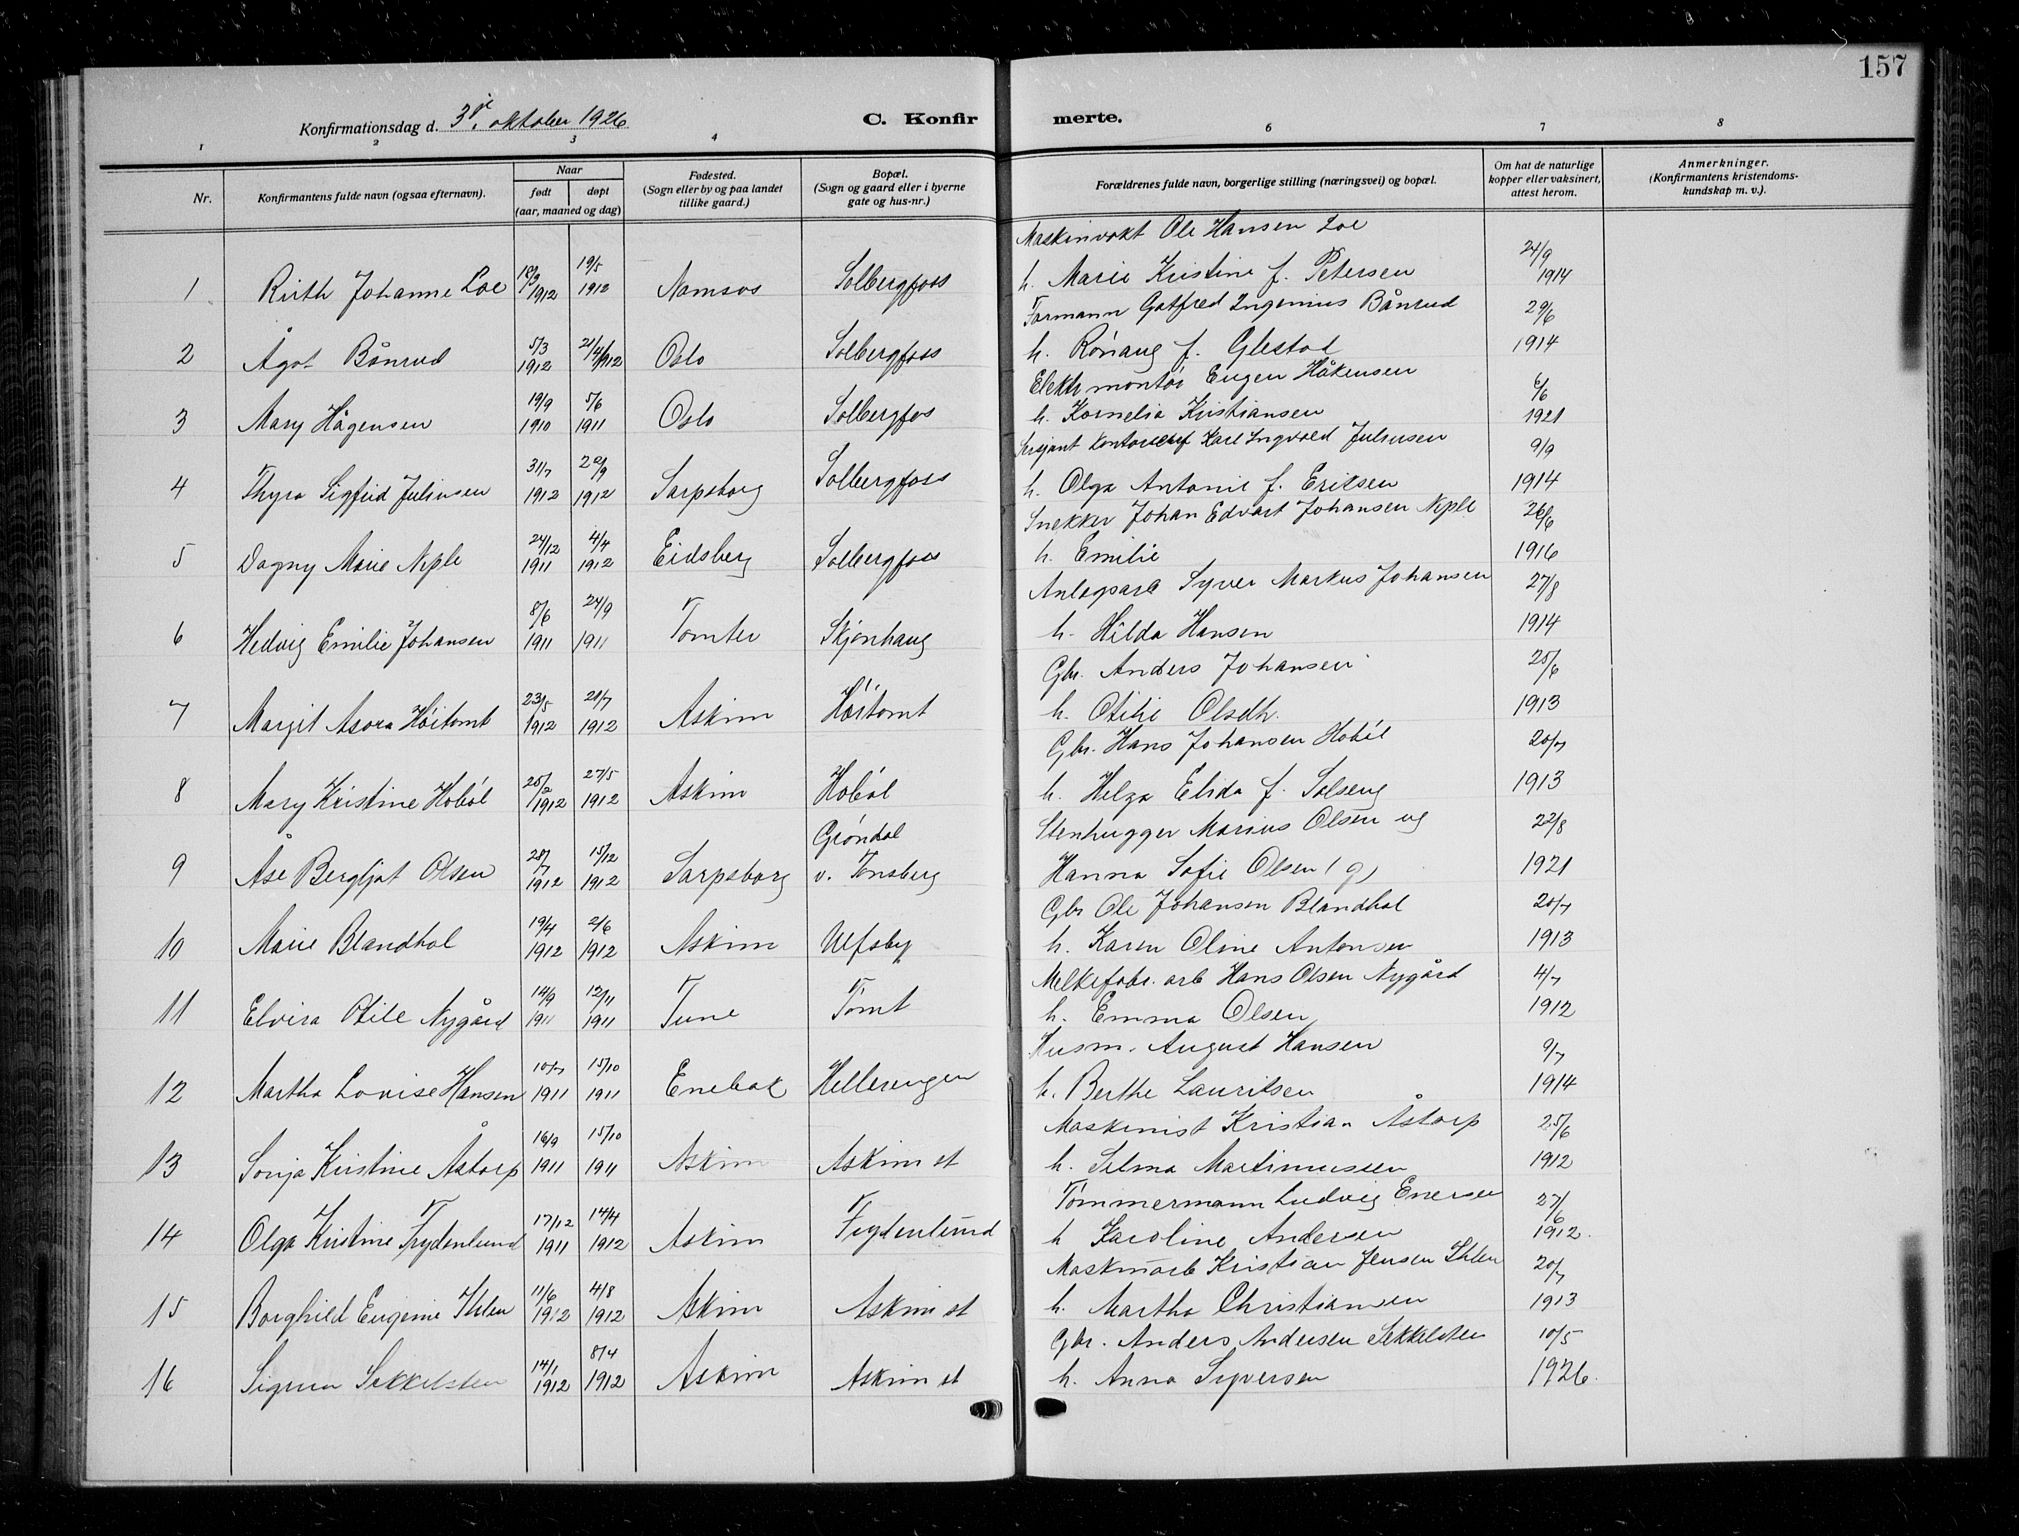 157
Konfirmationsdag d. 3je oktober 1926
C. Konfirmerte.
1 2 3 4 6 7 8
Nr.
Konfirmantens fulde navn (ogsaa efternavn).
Naar
født
døpt
(aar, maaned og dag)
Fødested.
(Sogn eller by og paa landet
tillike gaard.)
Bopæl.
(Sogn og gaard eller i byerne
gate og hus-nr.)
Forældrenes fulde navn, borgerlige stilling (næringsvei) og bopæl.
Om hat de naturlige
kopper eller vaksinert,
attest herom.
Anmerkninger.
(Konfirmantens kristendoms-
kundskap m. v.).
Maskinvakt Ole Hansen Loe
1 Ruth Johanne Loe 1912 19/5 1912 Namsos Solbergfoss h. Marie Kristine f. Petersen 24/9 1914
Formann Gotfred Ingenius Bånrud
2 Ågot Bånrud 5/3 1912 21/4 1912 Oslo Solbergfoss h. Rønaug f. Glestad 29/6 1914
Elektr montør Eugen Håkensen
3 Mary Hågensen 19/9 1910 5/6 1911 Oslo Solbergfos h. Kornelia Kristiansen 6/6 1921
Sersjant Karl Ingvald Juliussen
4 Thyra Sigfrid Juliussen 31/7 1912 20/9 1912 Sarpsborg Solbergfoss h. Olga Antonie f. Eriksen 9/9 1914
Snekker Johan Edvart Johansen Neple
5 Dagny Marie Neple 24/12 1911 4/4 1912 Eidsberg Solbergfoss h. Emilie 26/6 1916
Anlegsarb Syver Markus Johansen
6 Hedvig Emilie Johansen 8/6 1911 24/9 1911 Tomter Skjønhaug h. Hilda Hansen 27/8 1914
Gbr. Anders Johansen
7 Margit Asora Høitomt 23/5 1912 21/7 1912 Askim Høitomt h. Otilie Olsdh. 25/6 1913
Gbr. Hans Johansen Hobøl
8 Mary Kristine Hobøl 25/2 1912 27/5 1912 Askim Hobøl h. Helga Elida f. Solseng 20/7 1913
Stenhugger Marius Olsen og
9 Åse Bergljot Olsen 28/7 1912 15/12 1912 Sarpsborg Grøndal v. Tønsberg Hanna Sofie Olsen (g) 22/8 1921
Gbr Ole Johansen Blandhol
10 Marie Blandhol 19/4 1912 2/6 1912 Askim Ulfsby h. Karen Oline Antonsen 20/7 1913
Melkefabr. arb Hans Olsen Nygård
11 Elvira Otile Nygård 14/9 1911 12/11 1911 Tune Tomt h. Emma Olsen 4/7 1912
Husm. August Hansen
12 Martha Lovise Hansen 10/7 1911 15/10 1911 Enebak Hellerengen h. Berthe Lauritsen 9/7 1914
Maskinist Kristian Åstorp
13 Sonja Kristine Åstorp 16/9 1911 15/10 1911 Askim Askim st h. Selma Martinussen 25/6 1912
Tømmermann Ludvig Enersen
14 Olga Kristine Frydenlund 17/12 1911 14/4 1912 Askim Frydenlund h Karoline Andersen 27/6 1912.
Maskinarb Kristian Jensen Ihlen
15 Borghild Eugenie Ihlen 11/6 1912 4/8 1912 Askim Askim st h. Martha Christiansen 20/7 1913
Gbr. Anders Andersen Sekkelsten
16 Sigrun Sekkelsten 14/1 1912 8/4 1912 Askim Askim st h. Anna Syversen 10/5 1926.